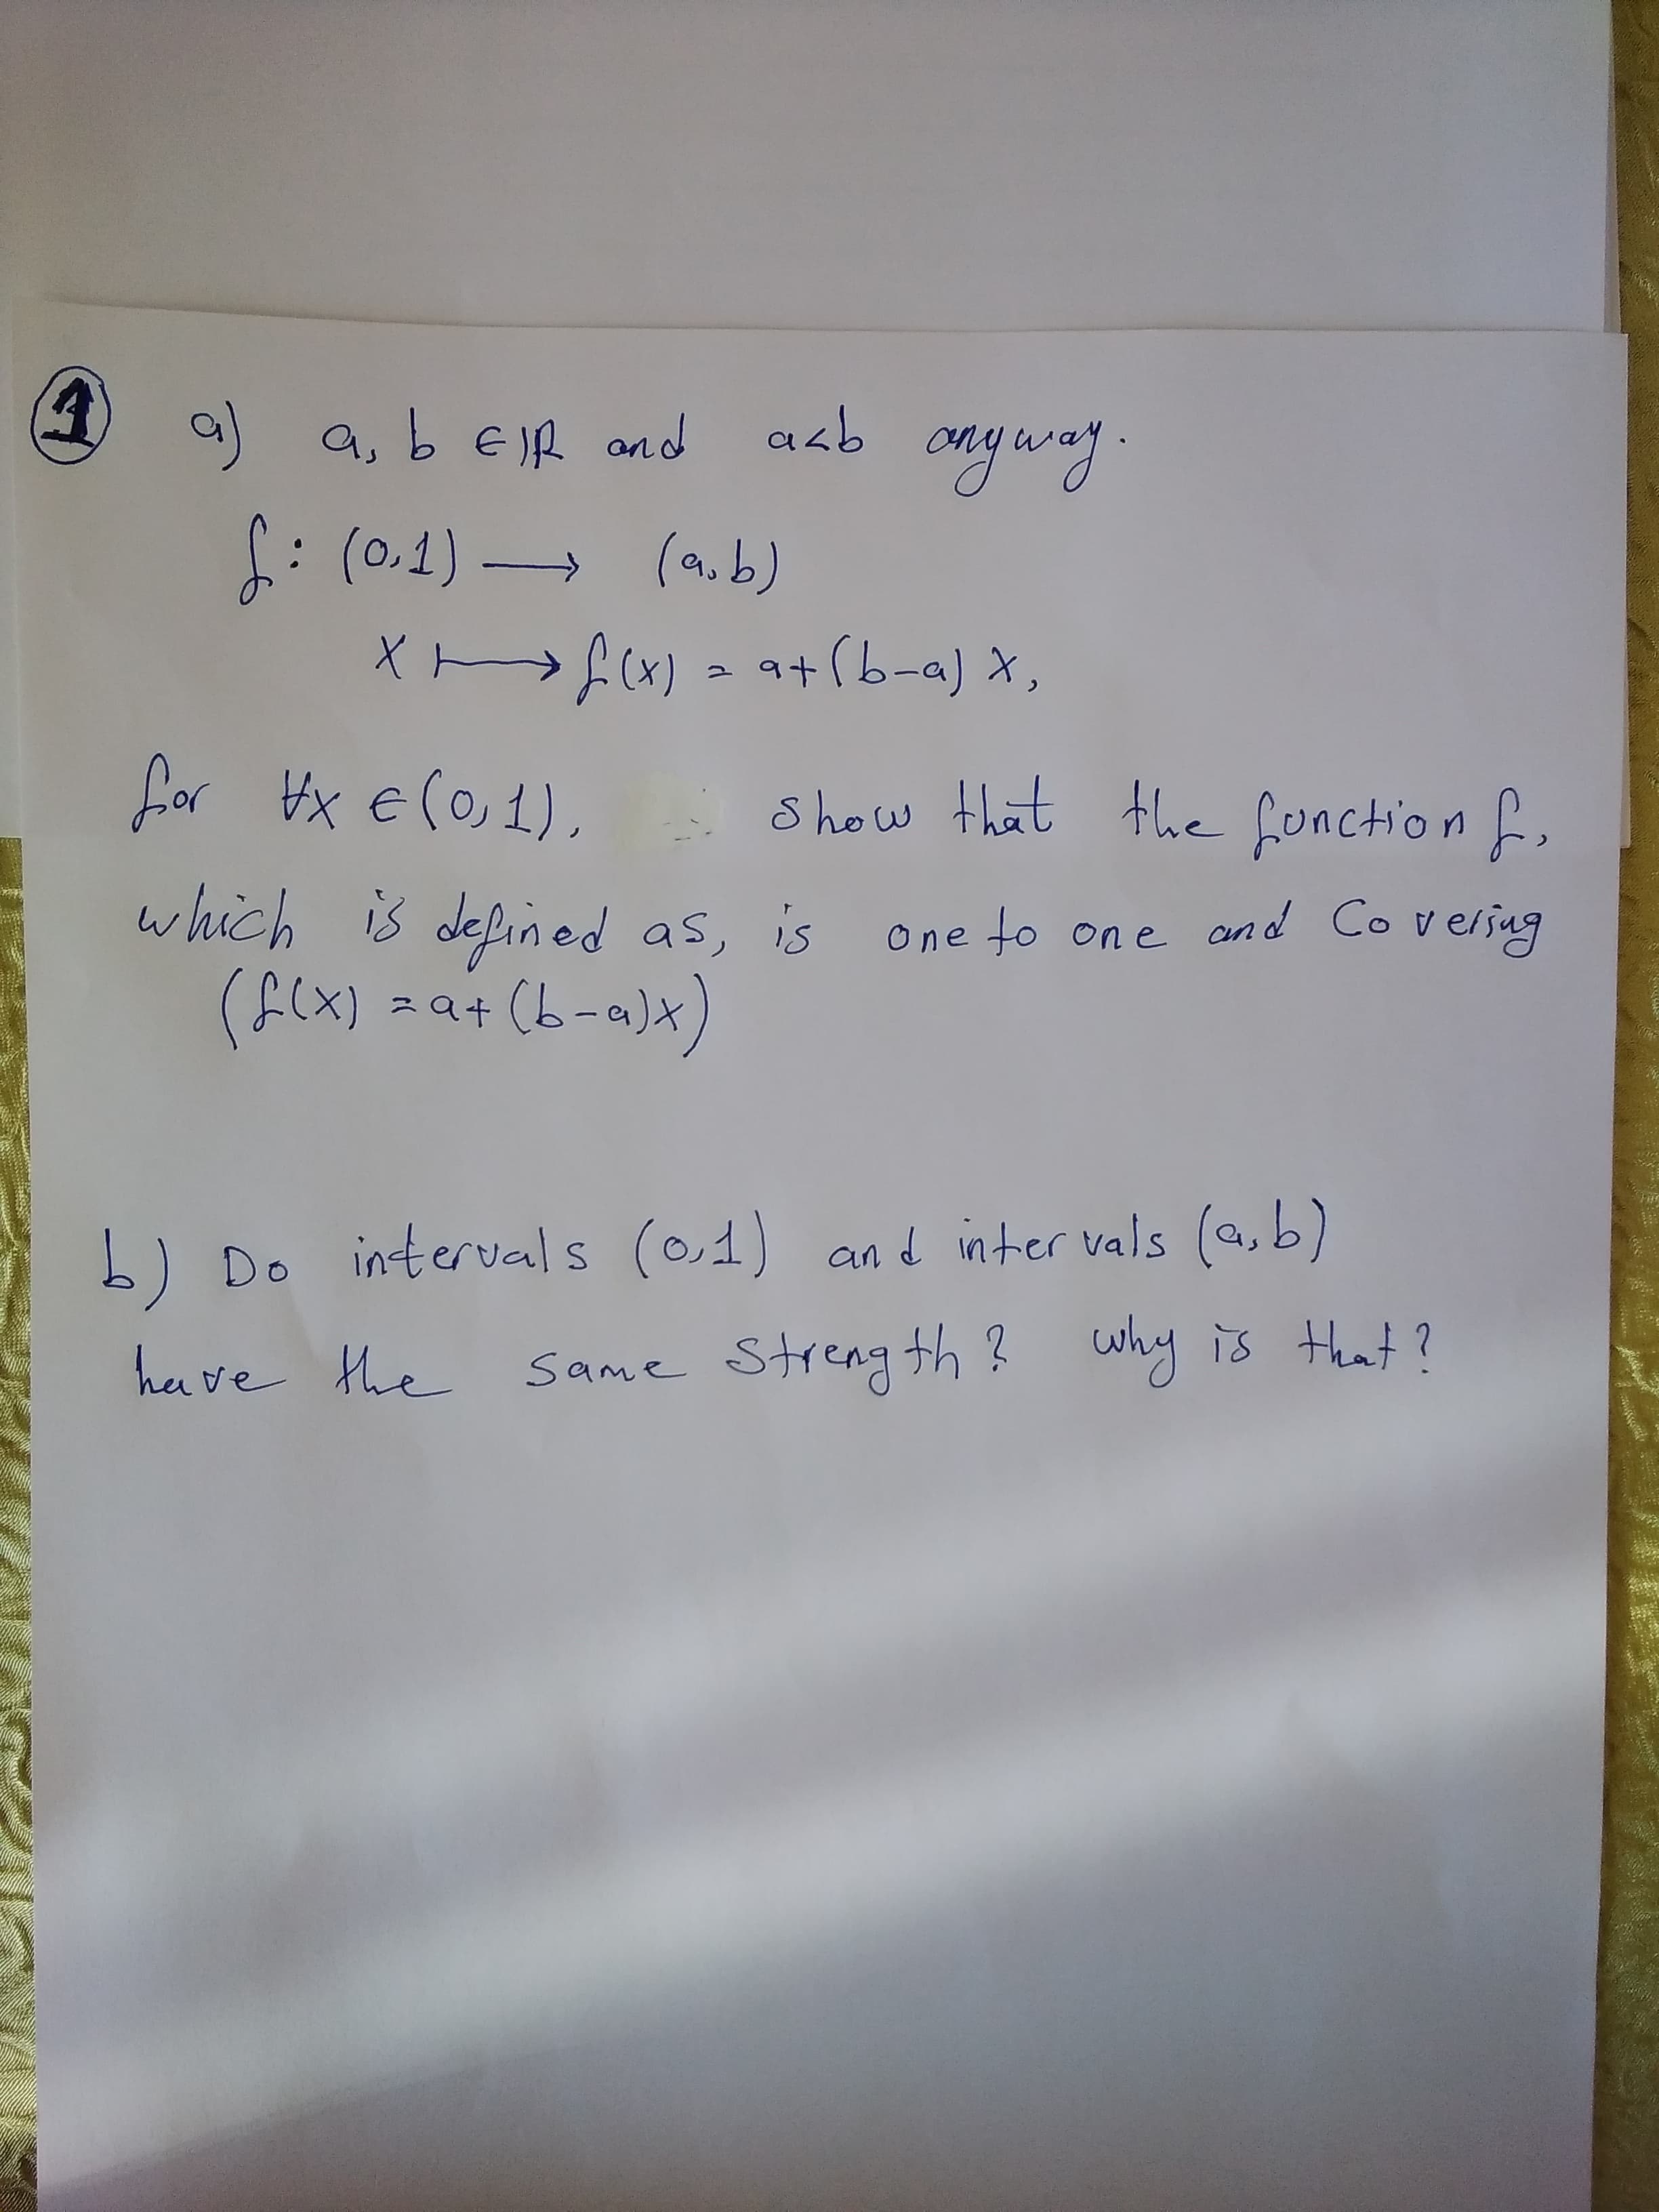 1 a) a, b ∈ IR and a<b anyway.
f: (0,1) ⟶ (a,b)
x ⟼ f(x) = a+(b-a) x,
for ∀x ∈ (0,1), show that the function f,
which is defined as, is one to one and Covering
(f(x) = a+(b-a)x)
b) Do intervals (0,1) and intervals (a,b)
have the same strength? why is that?